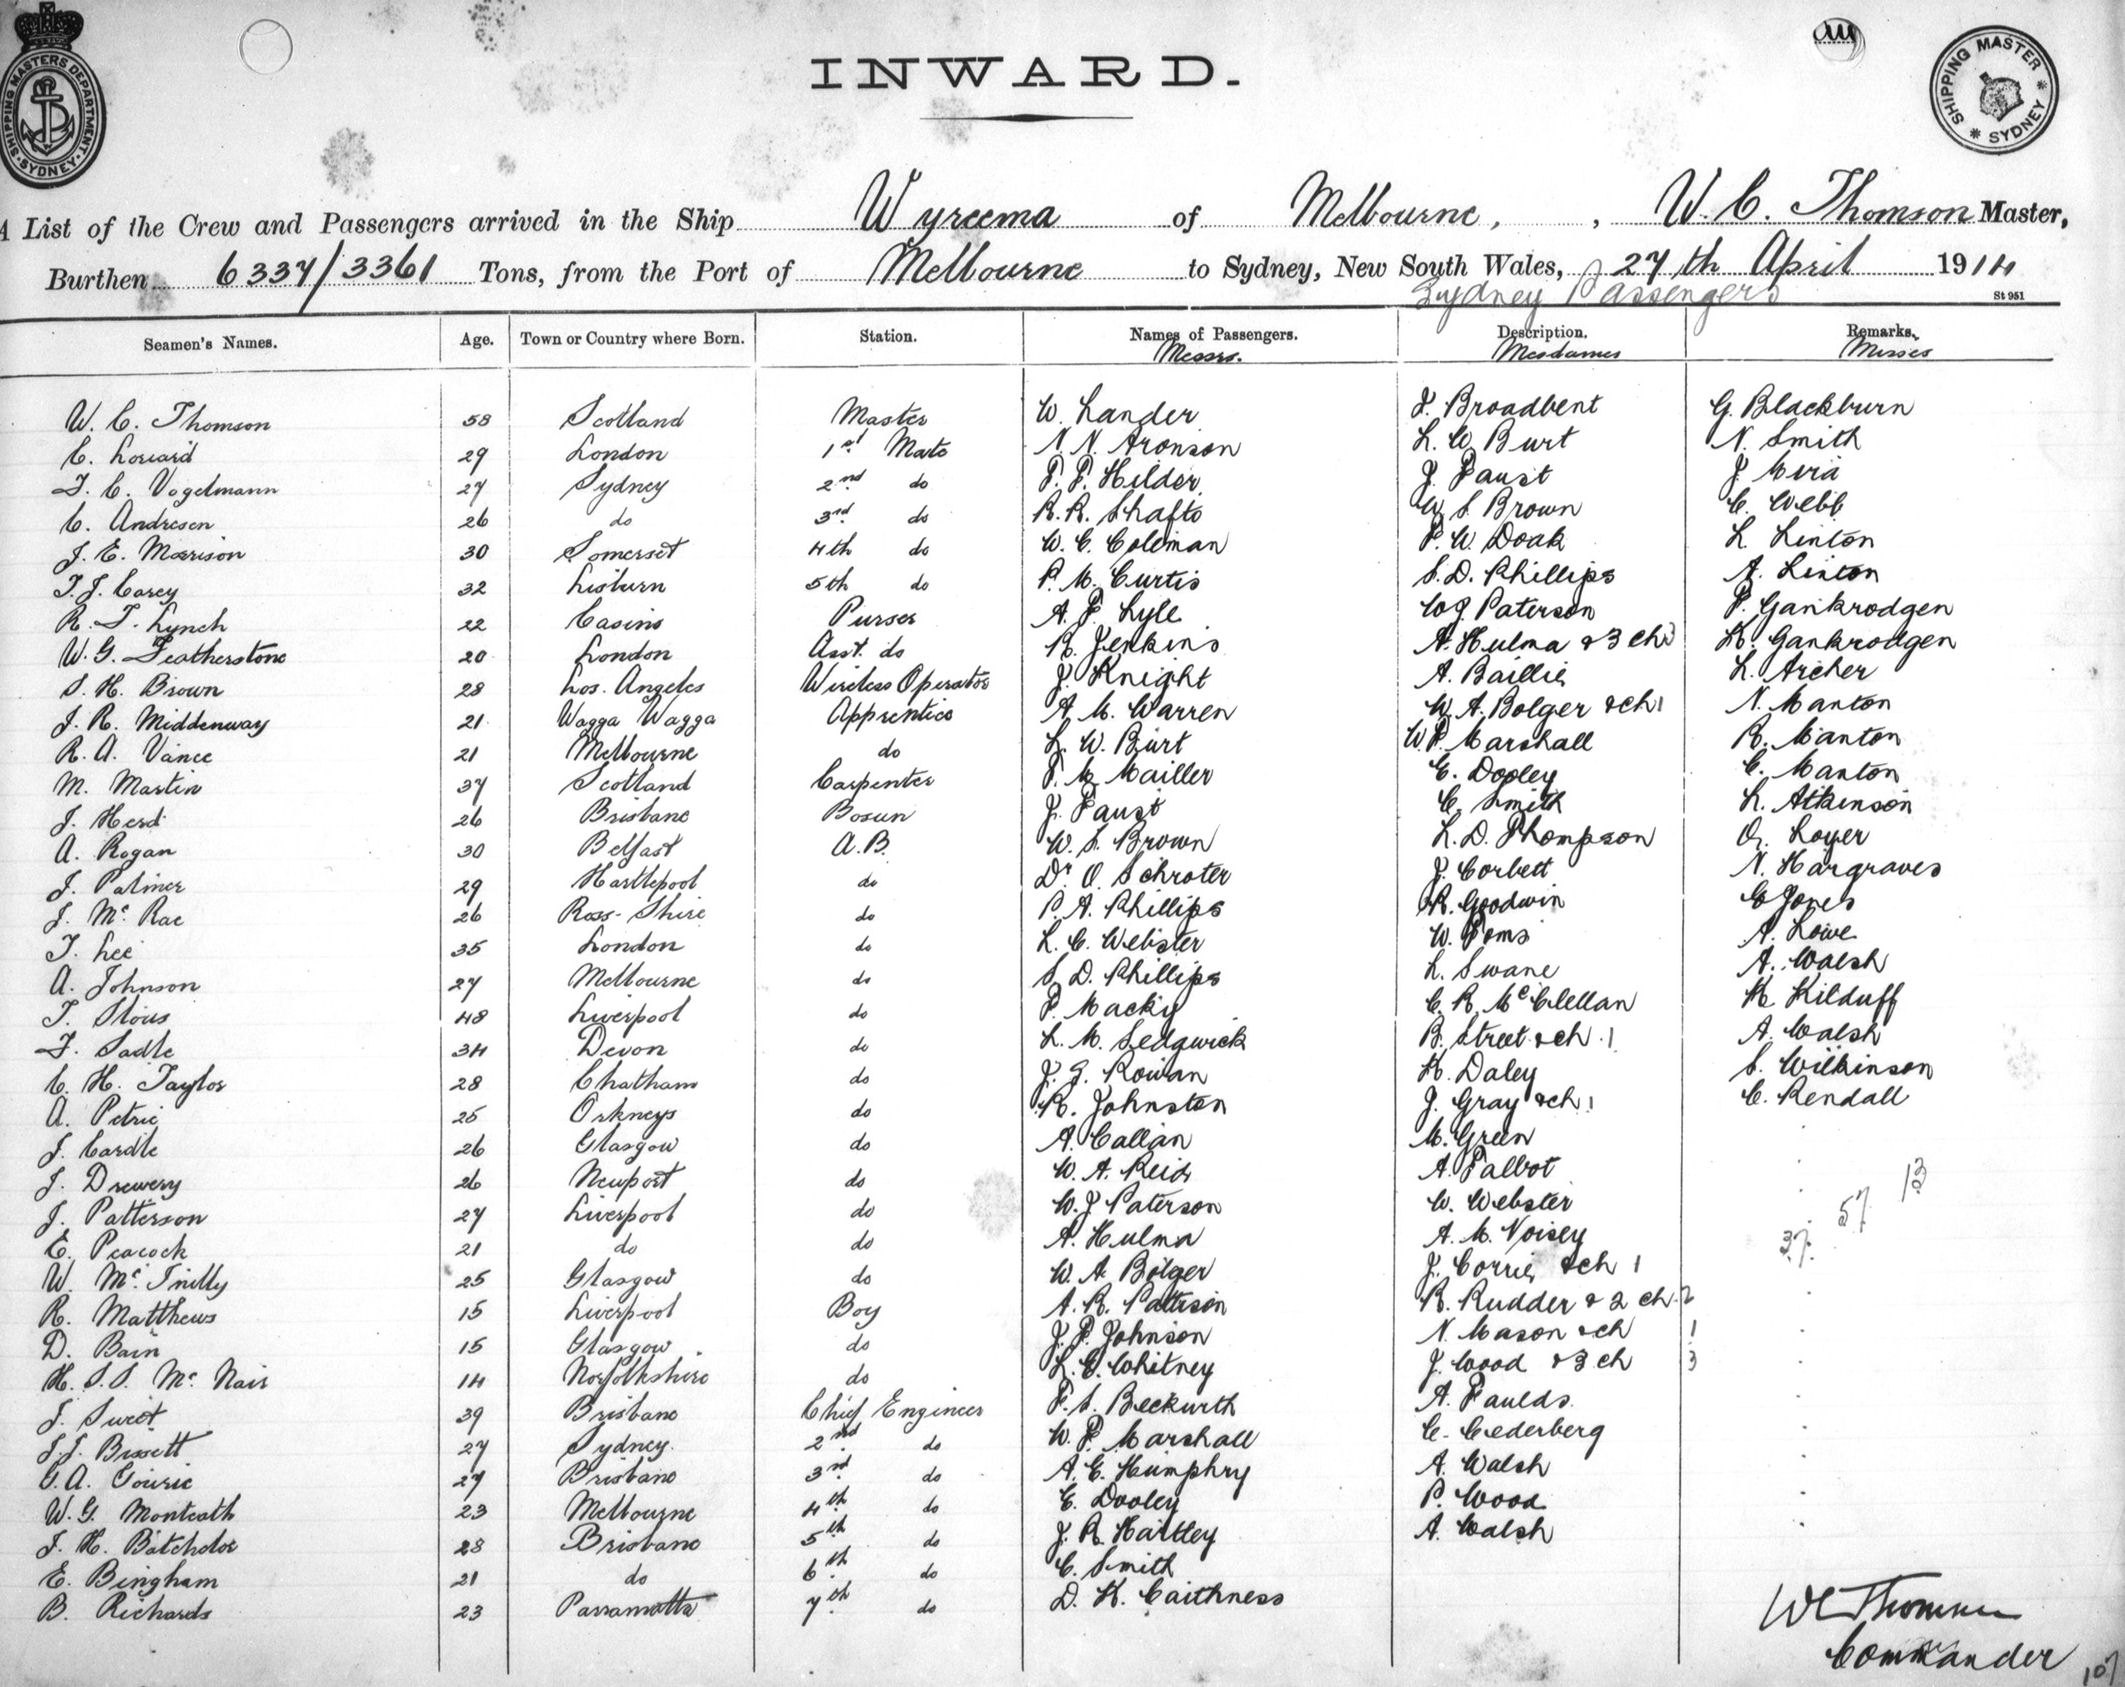 SHIPPING MASTERS DEPARTMENT · SYDNEY ·
SHIPPING MASTER * SYDNEY *
INWARD.
A List of the Crew and Passengers arrived in the Ship Wyreema of Melbourne, , W. C. Thomson Master,
Burthen 6337/3361 Tons, from the Port of Melbourne to Sydney, New South Wales, 27th April 1914
Sydney Passengers
St 951
Seamen's Names. Age. Town or Country where Born. Station. Names of Passengers. Description. Remarks.
Messrs. Mesdames Misses
W. C. Thomson 58 Scotland Master W. Lander J. Broadbent G. Blackburn
C. 29 London 1st Mate N. N. Aronson L. W. Burt N. Smith
F. C. Vogelmann 27 Sydney 2nd do F. F. Hilder J. Faust J.
C. Andresen 26 do 3rd do R. R. Shafto W. S. Brown C. Webb
J. E. Morrison 30 Somerset 4th do W. C. Coleman F. W. Doak L. Linton
T. J. Carey 32 Lisburn 5th do P. M. Curtis S. D. Phillips A. Linton
R. T. Lynch 22 Casino Purser A. F. Lyle W J Paterson F. Gankrodgen
W. G. Featherstone 20 London Asst. do R. Jenkins A. Hulma & 3 ch 3 K. Gankrodgen
S. H. Brown 28 Los. Angeles Wireless Operator J. Knight A. Baillie L. Archer
J. R. Middenway 21 Wagga Wagga Apprentice A M. Warren W. A. Bolger & ch 1 N. Manton
R. A. Vance 21 Melbourne do L. W. Burt W F. Marshall R. Manton
M. Martin 37 Scotland Carpenter F. M. Mailler E. Dooley C. Manton
J. Herd 26 Brisbane Bosun J. Faust C. Smith L. Atkinson
A. Rogan 30 Belfast A.B. W. S. Brown L. D. Thompson O. Loyer
J. Palmer 29 Hartlepool do Dr O. Schroter J. Corbett N. Hargraves
J. Mc Rae 26 Ross-Shire do P. A. Phillips R. Goodwin E Jones
T. Lee 35 London do L. C. Webster W. Toms A. Lowe
A. Johnson 27 Melbourne do S. D. Phillips L. Swane A. Walsh
T. 48 Liverpool do F. Macky C. R. Mc Clellan K Kilduff
F. Sadle 34 Devon do L. M. Sedgwick B. Street & ch . 1 A. Walsh
C. H. Taylor 28 Chatham do J. G. Rowan K. Daley S. Wilkinson
A. Petrie 25 Orkneys do R. Johnston J. Gray & ch 1 C. Rendall
J. Cardle 26 Glasgow do A. Callan M. Green
J. Drewery 26 Newport do W. A. Reid A. Talbot
J. Patterson 27 Liverpool do W. J Paterson W. Webster
E. Peacock 21 do do A. Hulma A. M. Voisey
W. Mc 25 Glasgow do W. A Bolger J. Corrie & ch 1
R. Matthews 15 Liverpool Boy A. R. Pattison R. Rudder & 2 ch 2
D. Bain 15 Glasgow do J. F. Johnson N. Mason & ch 1
H. S. S. Mc Nair 14 Norfolkshire do L. E. Whitney J. Wood & 3 ch 3
J. Sweet 39 Brisbane Chief Engineer F. S. Beckurth A. Faulds
J. J. Bissett 27 Sydney 2nd do W. F. Marshall C. Cederberg
G. A. Gourie 27 Brisbane 3rd do A. E. Humphry A. Walsh
W. G. Monteath 23 Melbourne 4th do E. Dooley P. Wood
J. H. Batchelor 28 Brisbane 5th do J. R. Hartley A. Walsh
E. Bingham 21 do 6th do C. Smith
B. Richards 23 Parramatta 7th do D. K. Caithness
37. 57 13
W C Thomson
Commander
107